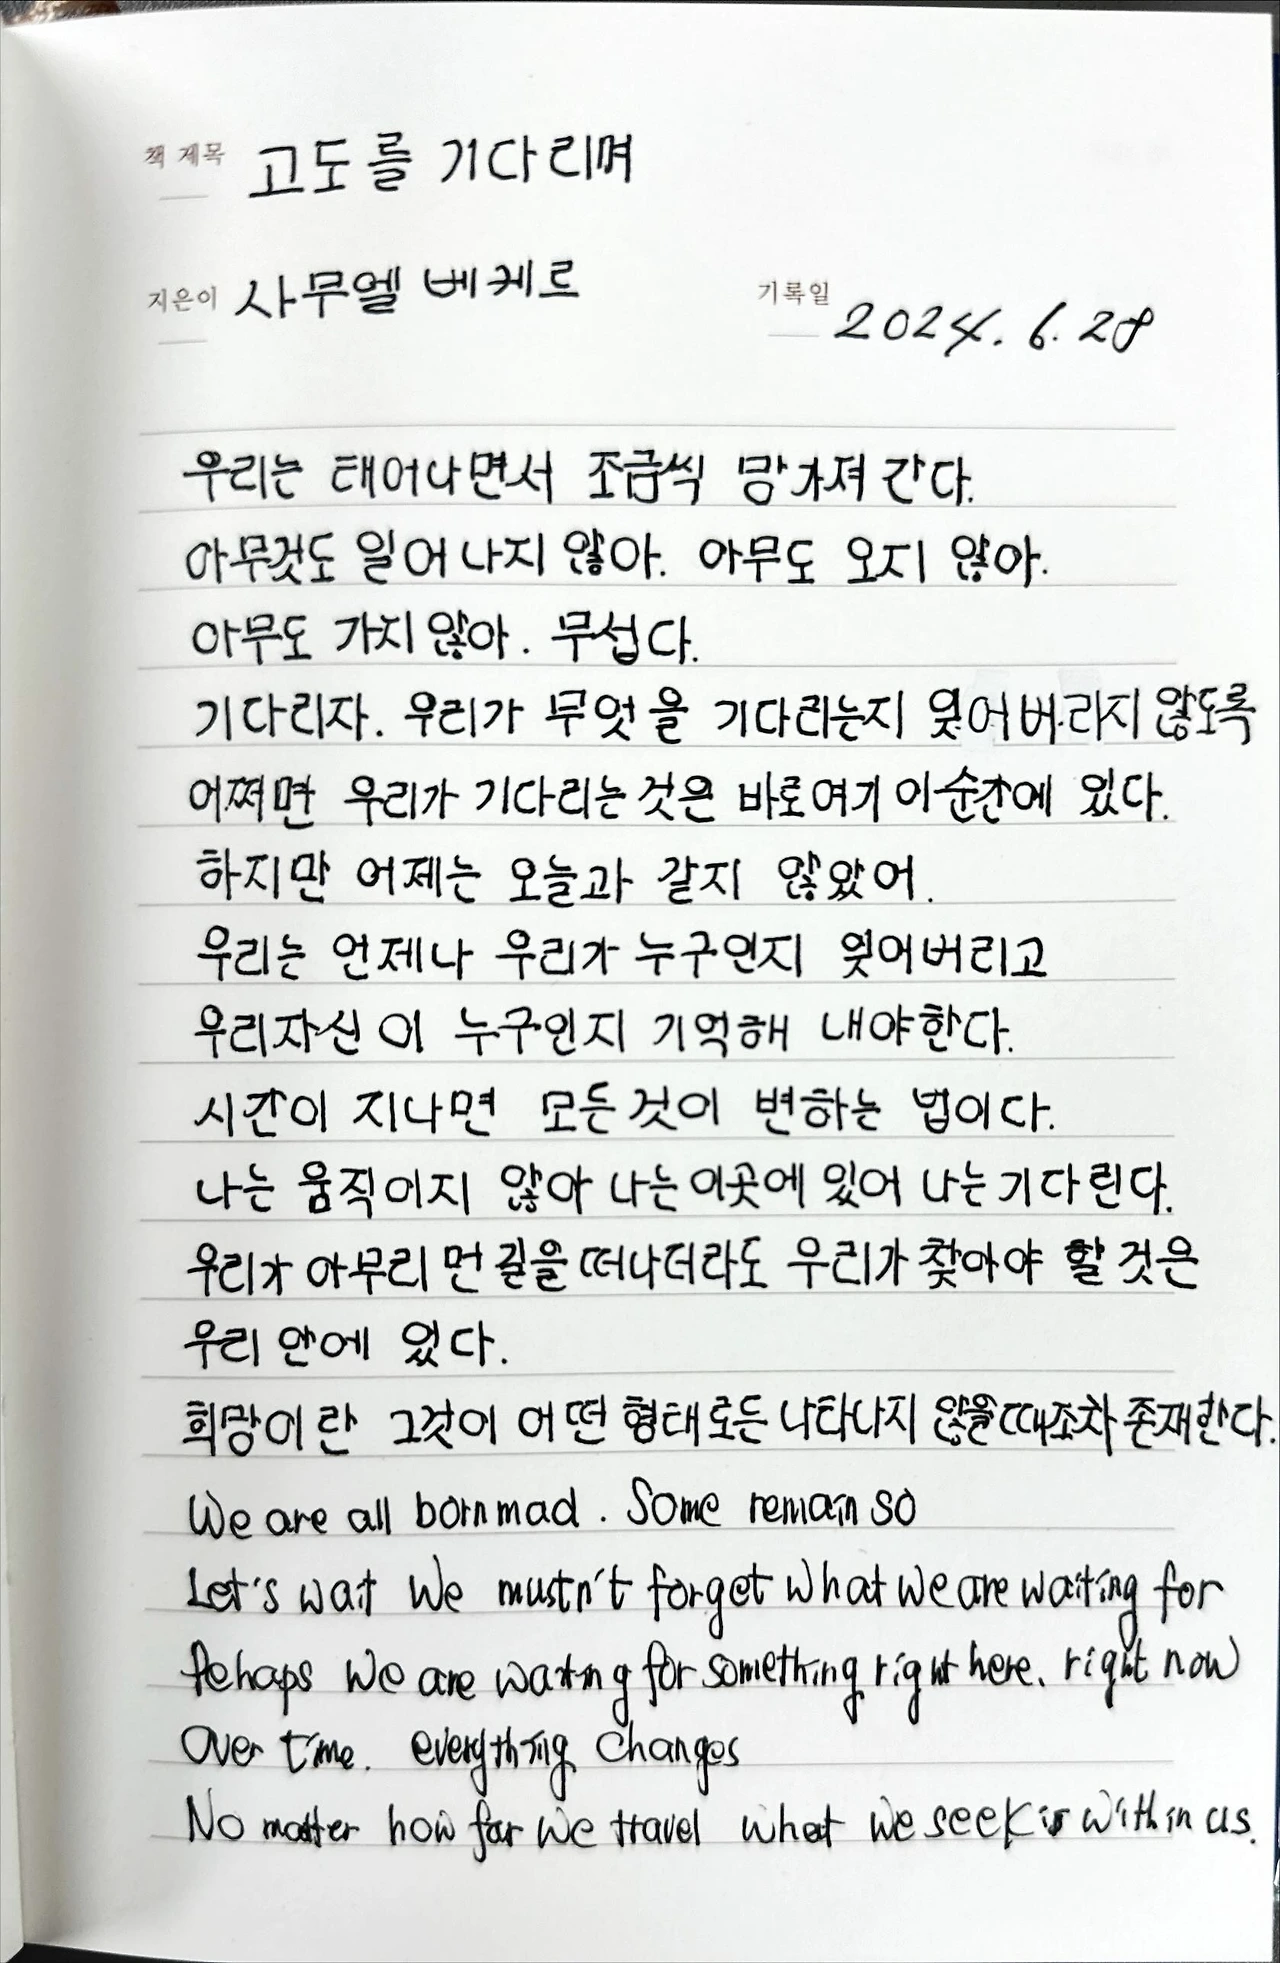 책 제목 고도를 기다리며
지은이 사무엘 베케르
기록일 2024. 6. 28
우리는 태어나면서 조금씩 망가져 간다.
아무것도 일어나지 않아. 아무도 오지 않아.
아무도 가지 않아. 무섭다.
기다리자. 우리가 무엇을 기다리는지 잊어버리지 않도록
어쩌면 우리가 기다리는 것은 바로 여기 이 순간에 있다.
하지만 어제는 오늘과 같지 않았어.
우리는 언제나 우리가 누구인지 잊어버리고
우리 자신이 누구인지 기억해 내야 한다.
시간이 지나면 모든 것이 변하는 법이다.
나는 움직이지 않아 나는 이곳에 있어 나는 기다린다.
우리가 아무리 먼 길을 떠나더라도 우리가 찾아야 할 것은
우리 안에 있다.
희망이란 그것이 어떤 형태로든 나타나지 않을 때조차 존재한다.
We are all born mad. Some remain so
Let's wait We mustn't forget what we are waiting for
Pehaps We are waiting for something right here. right now
Over time. everything changes
No matter how far we travel what we seek is within us.